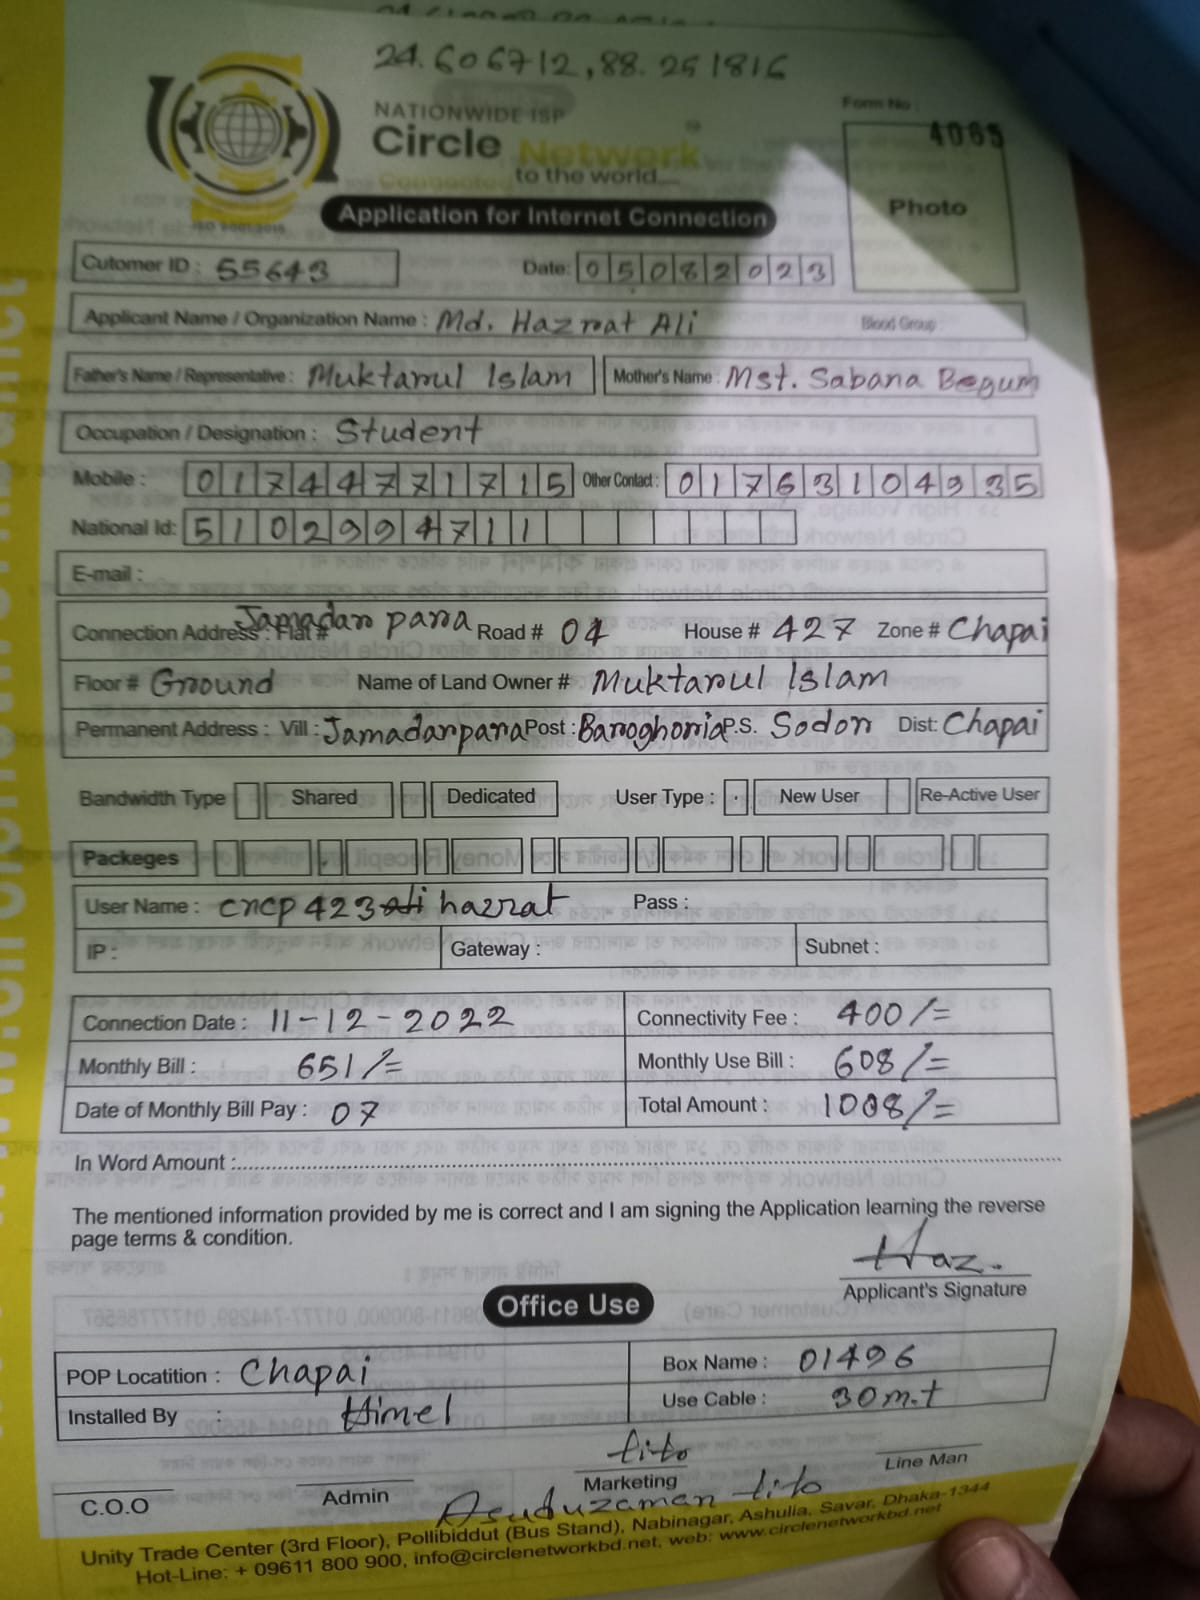 24.606712,88.251816
NATIONWIDE ISP
Circle Network
Connected to the world...
ISO 9001:2015
Form No :
4065
Photo
Application for Internet Connection
Cutomer ID : 55643
Date: 05082023
Applicant Name / Organization Name : Md. Hazrat Ali
Blood Group :
Father's Name / Representative : Muktarul Islam
Mother's Name : Mst. Sabana Begum
Occupation / Designation : Student
Mobile : 01744771715
Other Contact : 01763104935
National Id: 5102994711
E-mail :
Connection Address : Flat # Jamadar para Road # 04 House # 427 Zone # Chapai
Floor # Ground Name of Land Owner # Muktarul Islam
Permanent Address : Vill : Jamadarpara Post : Baroghoria P.S. Sodor Dist: Chapai
Bandwidth Type Shared Dedicated User Type : New User Re-Active User
Packeges
User Name : cncp423 hazrat Pass :
IP : Gateway : Subnet :
Connection Date : 11-12-2022 Connectivity Fee : 400/=
Monthly Bill : 651/= Monthly Use Bill : 608/=
Date of Monthly Bill Pay : 07 Total Amount : 1008/=
In Word Amount :
The mentioned information provided by me is correct and I am signing the Application learning the reverse
page terms & condition.
Haz.
Applicant's Signature
Office Use
POP Locatition : Chapai Box Name : 01496
Installed By : Himel Use Cable : 30m.t
tito
C.O.O Admin Marketing Line Man
Asuduzaman tito
Unity Trade Center (3rd Floor), Pollibiddut (Bus Stand), Nabinagar, Ashulia, Savar, Dhaka-1344
Hot-Line: + 09611 800 900, info@circlenetworkbd.net, web: www.circlenetworkbd.net